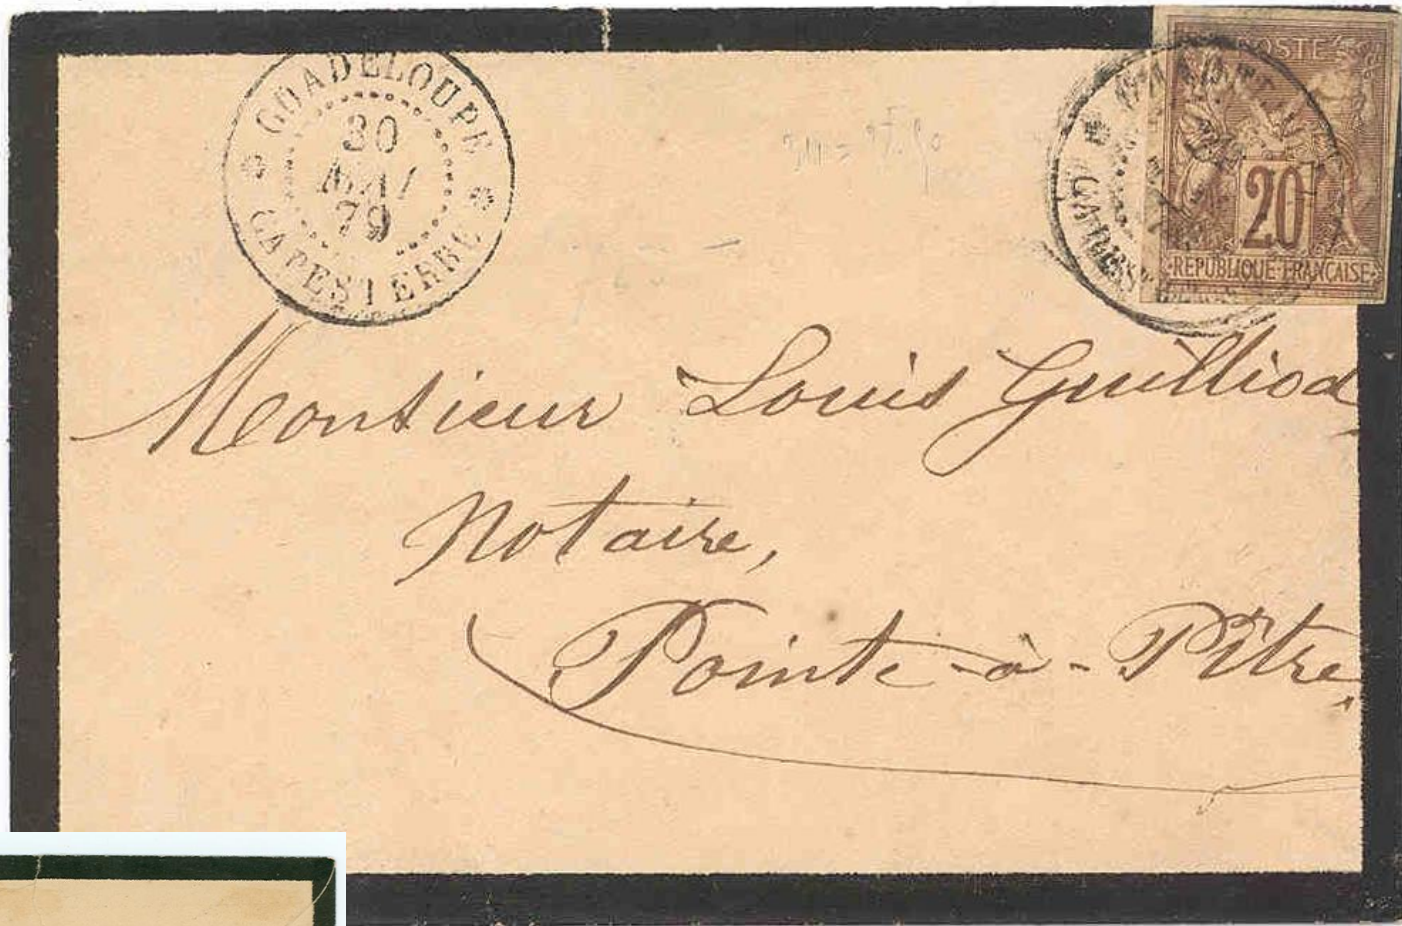 GUADELOUPE
30
MAI
79
CAPESTERRE
POSTE
20
REPUBLIQUE FRANCAISE
Monsieur Louis Guilliod
Notaire,
Pointe-à-Pitre